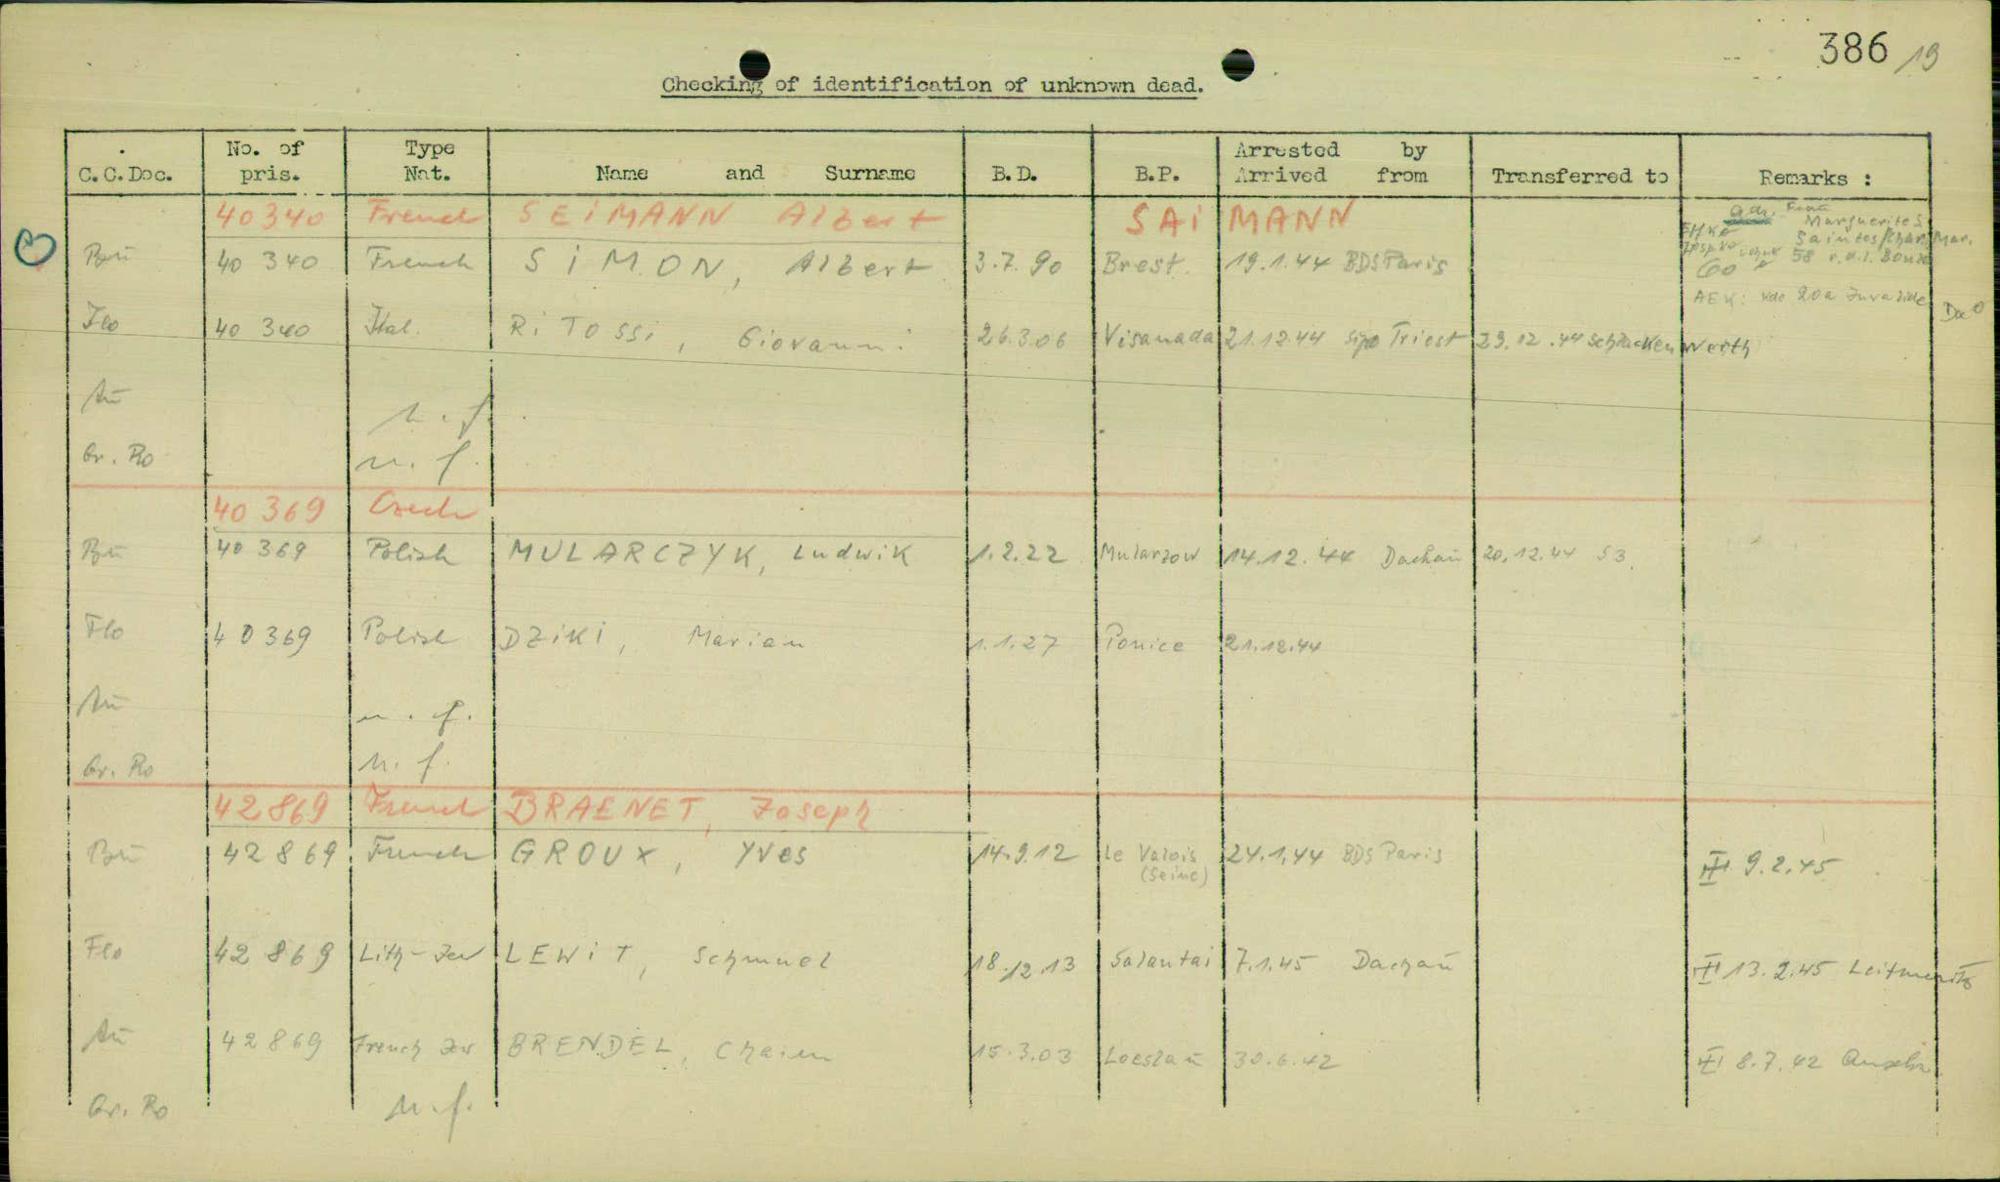 386 19
Checking of identification of unknown dead.
C.C.Doc. No. of pris. Type Nat. Name and Surname B.D. B.P. Arrested by Arrived from Transferred to Remarks :
40340 French SEIMANN Albert SAIMANN
Marguerite S
Saintes/Char. Mar.
Bu 40 340 French SIMON, Albert 3.7.90 Brest. 19.1.44 BDS Paris
58
AEK: Kdo 20a Invalide Da
Flo 40 340 Ital. RiTOSSi, Giovanni 26.3.06 Visanada 21.12.44 Sipo Triest 29.12.44 Schlackenwerth
Au n.f.
Gr. Ro n.f.
40 369 Czech
Bu 40 369 Polish MULARCZYK, Ludwik 1.2.22 Mularzow 14.12.44 Dachau 20.12.44 S3.
Flo 40369 Polish DZiKi, Marian 1.1.27 Ponice 21.12.44
Au n.f.
Gr. Ro n.f.
42869 French BRAENET, Joseph
Bu 42869 French GROUX, Yves 14.9.12 Le Valois (Seine) 24.1.44 BDS Paris 9.2.45
Flo 42 869 Lith-Jew LEWiT, Schmuel 18.12.13 Salantai 7.1.45 Dachau 13.2.45 Leitmeritz
Au 42869 French Jew BRENDEL, Chaim 15.3.03 Loeslau 30.6.42 8.7.42
Gr. Ro n.f.